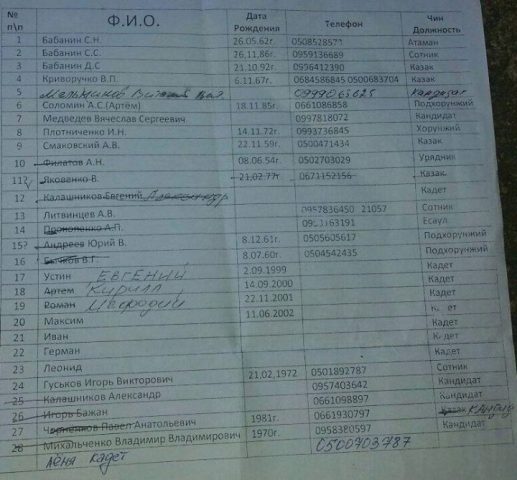 № п\п Ф.И.О. Дата Рождения Телефон Чин Должность
1 Бабанин С.Н. 26.05.62г. Атаман
2 Бабанин С.С. 26,11.86г. 0959136689 Сотник
3 Бабанин Д.С 21.10.92г. 0956412390 Казак
4 Криворучко В.П. 6.11.67г. 0684586845 0500683704 Казак
5 Мальчиков 0999065625 Кандидат
6 Соломин А.С.(Артём) 18.11.85г. 0661086858 Подхорунжий
7 Медведев Вячеслав Сергеевич 0997818072 Кандидат
8 Плотниченко И.Н. 14.11.72г. 0993736845 Хорунжий
9 Смаковский А.В. 22.11.59г. 0500471434 Казак
10 Филатов А.Н. 08.06.54г. 0502703029 Урядник
11? Яковенко В. 21.02.77г 0671152156 Казак
12 Калашников Евгений Кадет
13 Литвинцев А.В. 0957836450 21057 Сотник
14 Прокопенко А.П. Есаул
15? Андреев Юрий В. 8.12.61г. 0505605617 Подхорунжий
16 Бычков В.Г. 8.07.60г. 0504542435 Подхорунжий
17 Устин ЕВГЕНИЙ 2.09.1999 Кадет
18 Артем Кирилл 14.09.2000 Кадет
19 Роман 22.11.2001 Кадет
20 Максим 11.06.2002 Кадет
21 Иван Кадет
22 Герман Кадет
23 Леонид Кадет
24 Гуськов Игорь Викторович 21,02,1972 0501892787 Сотник
25 Калашников Александр 0957403642 Кандидат
26 Игорь Бажан 0661098897 Кандидат
27 Павел Анатольевич 1981г. 0661930797 Казак
28 Михальченко Владимир Владимирович 1970г. 0958380597 Кандидат
Лёня кадет 0500703787